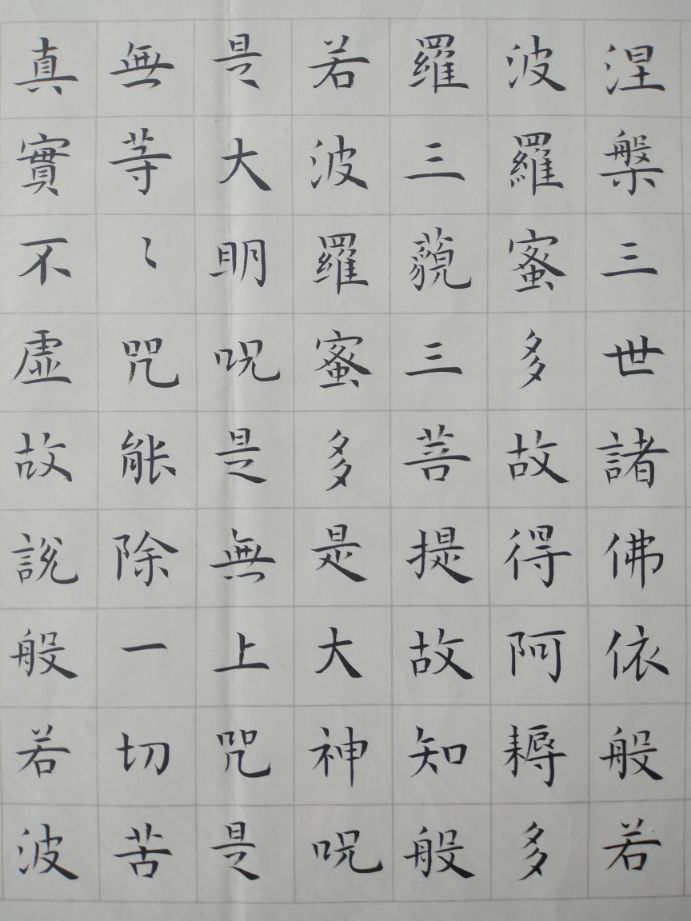 涅槃三世諸佛依般若
波羅蜜多故得阿耨多
羅三藐三菩提故知般
若波羅蜜多是大神呪
是大明呪是無上咒是
無等〻咒能除一切苦
真實不虛故說般若波